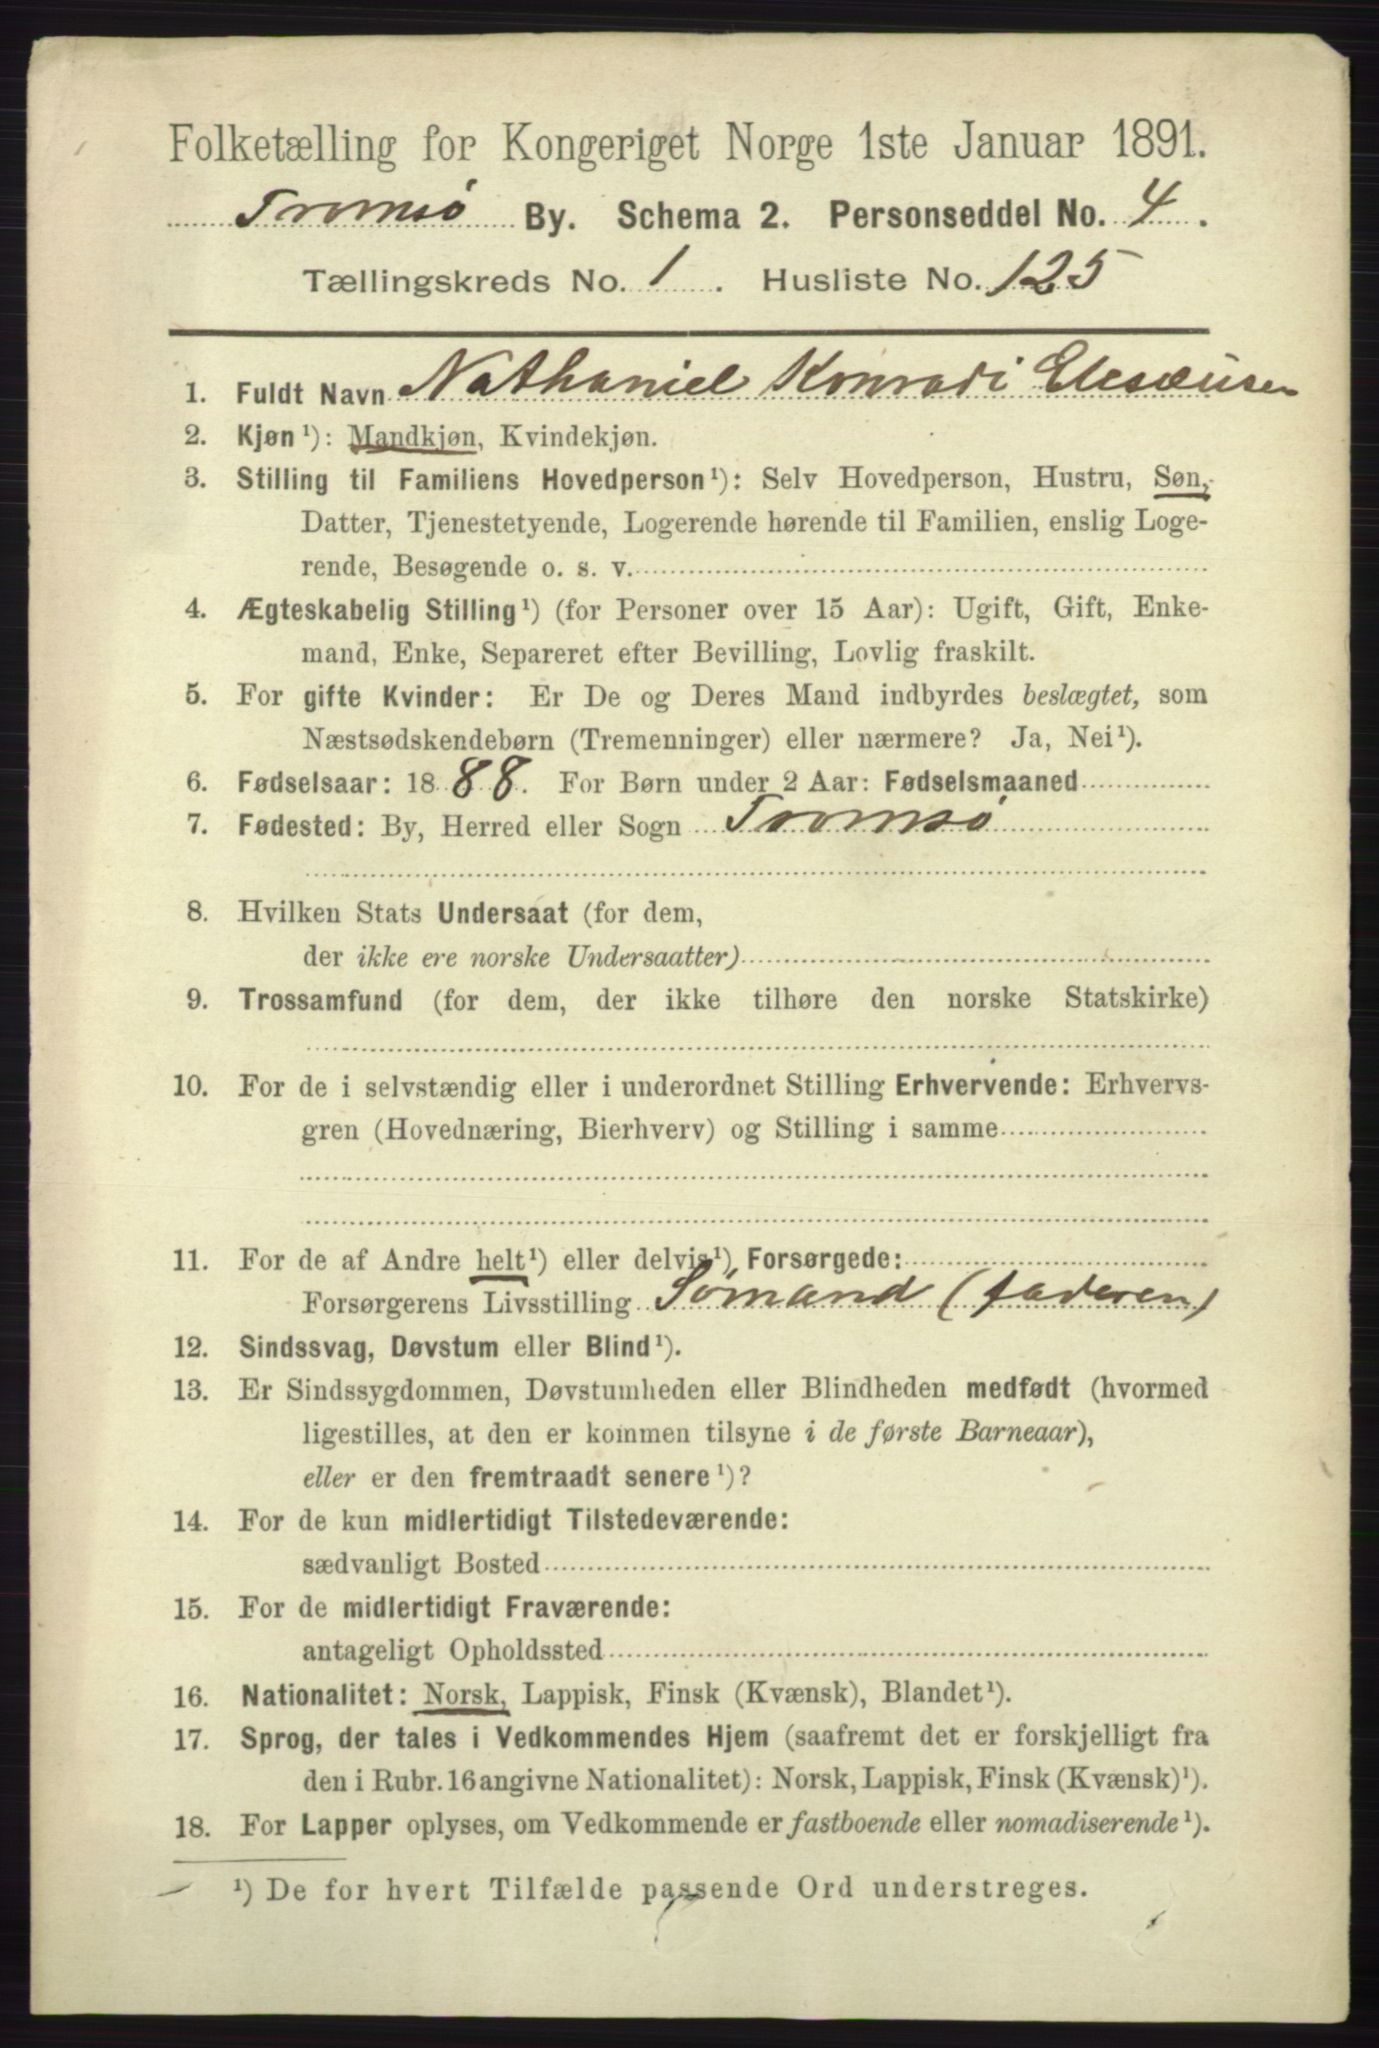 Folketælling for Kongeriget Norge 1ste Januar 1891.
Tromsø By. Schema 2. Personseddel No. 4.
Tællingskreds No. 1. Husliste No. 125
1. Fuldt Navn Nathaniel Konradi Elesæusen
2. Kjøn¹): Mandkjøn, Kvindekjøn.
3. Stilling til Familiens Hovedperson¹): Selv Hovedperson, Hustru, Søn,
Datter, Tjenestetyende, Logerende hørende til Familien, enslig Loge-
rende, Besøgende o. s. v.
4. Ægteskabelig Stilling¹) (for Personer over 15 Aar): Ugift, Gift, Enke-
mand, Enke, Separeret efter Bevilling, Lovlig fraskilt.
5. For gifte Kvinder: Er De og Deres Mand indbyrdes beslægtet, som
Næstsødskendebørn (Tremenninger) eller nærmere? Ja, Nei¹).
6. Fødselsaar: 1888. For Børn under 2 Aar: Fødselsmaaned
7. Fødested: By, Herred eller Sogn Tromsø
8. Hvilken Stats Undersaat (for dem,
der ikke ere norske Undersaatter)
9. Trossamfund (for dem, der ikke tilhøre den norske Statskirke)
10. For de i selvstændig eller i underordnet Stilling Erhvervende: Erhvervs-
gren (Hovednæring, Bierhverv) og Stilling i samme
11. For de af Andre helt¹) eller delvis¹) Forsørgede:
Forsørgerens Livsstilling Sømand (faderen)
12. Sindssvag, Døvstum eller Blind¹).
13. Er Sindssygdommen, Døvstumheden eller Blindheden medfødt (hvormed
ligestilles, at den er kommen tilsyne i de første Barneaar),
eller er den fremtraadt senere¹)?
14. For de kun midlertidigt Tilstedeværende:
sædvanligt Bosted
15. For de midlertidigt Fraværende:
antageligt Opholdssted
16. Nationalitet: Norsk, Lappisk, Finsk (Kvænsk), Blandet¹).
17. Sprog, der tales i Vedkommendes Hjem (saafremt det er forskjelligt fra
den i Rubr. 16 angivne Nationalitet): Norsk, Lappisk, Finsk (Kvænsk)¹).
18. For Lapper oplyses, om Vedkommende er fastboende eller nomadiserende¹).
¹) De for hvert Tilfælde passende Ord understreges.